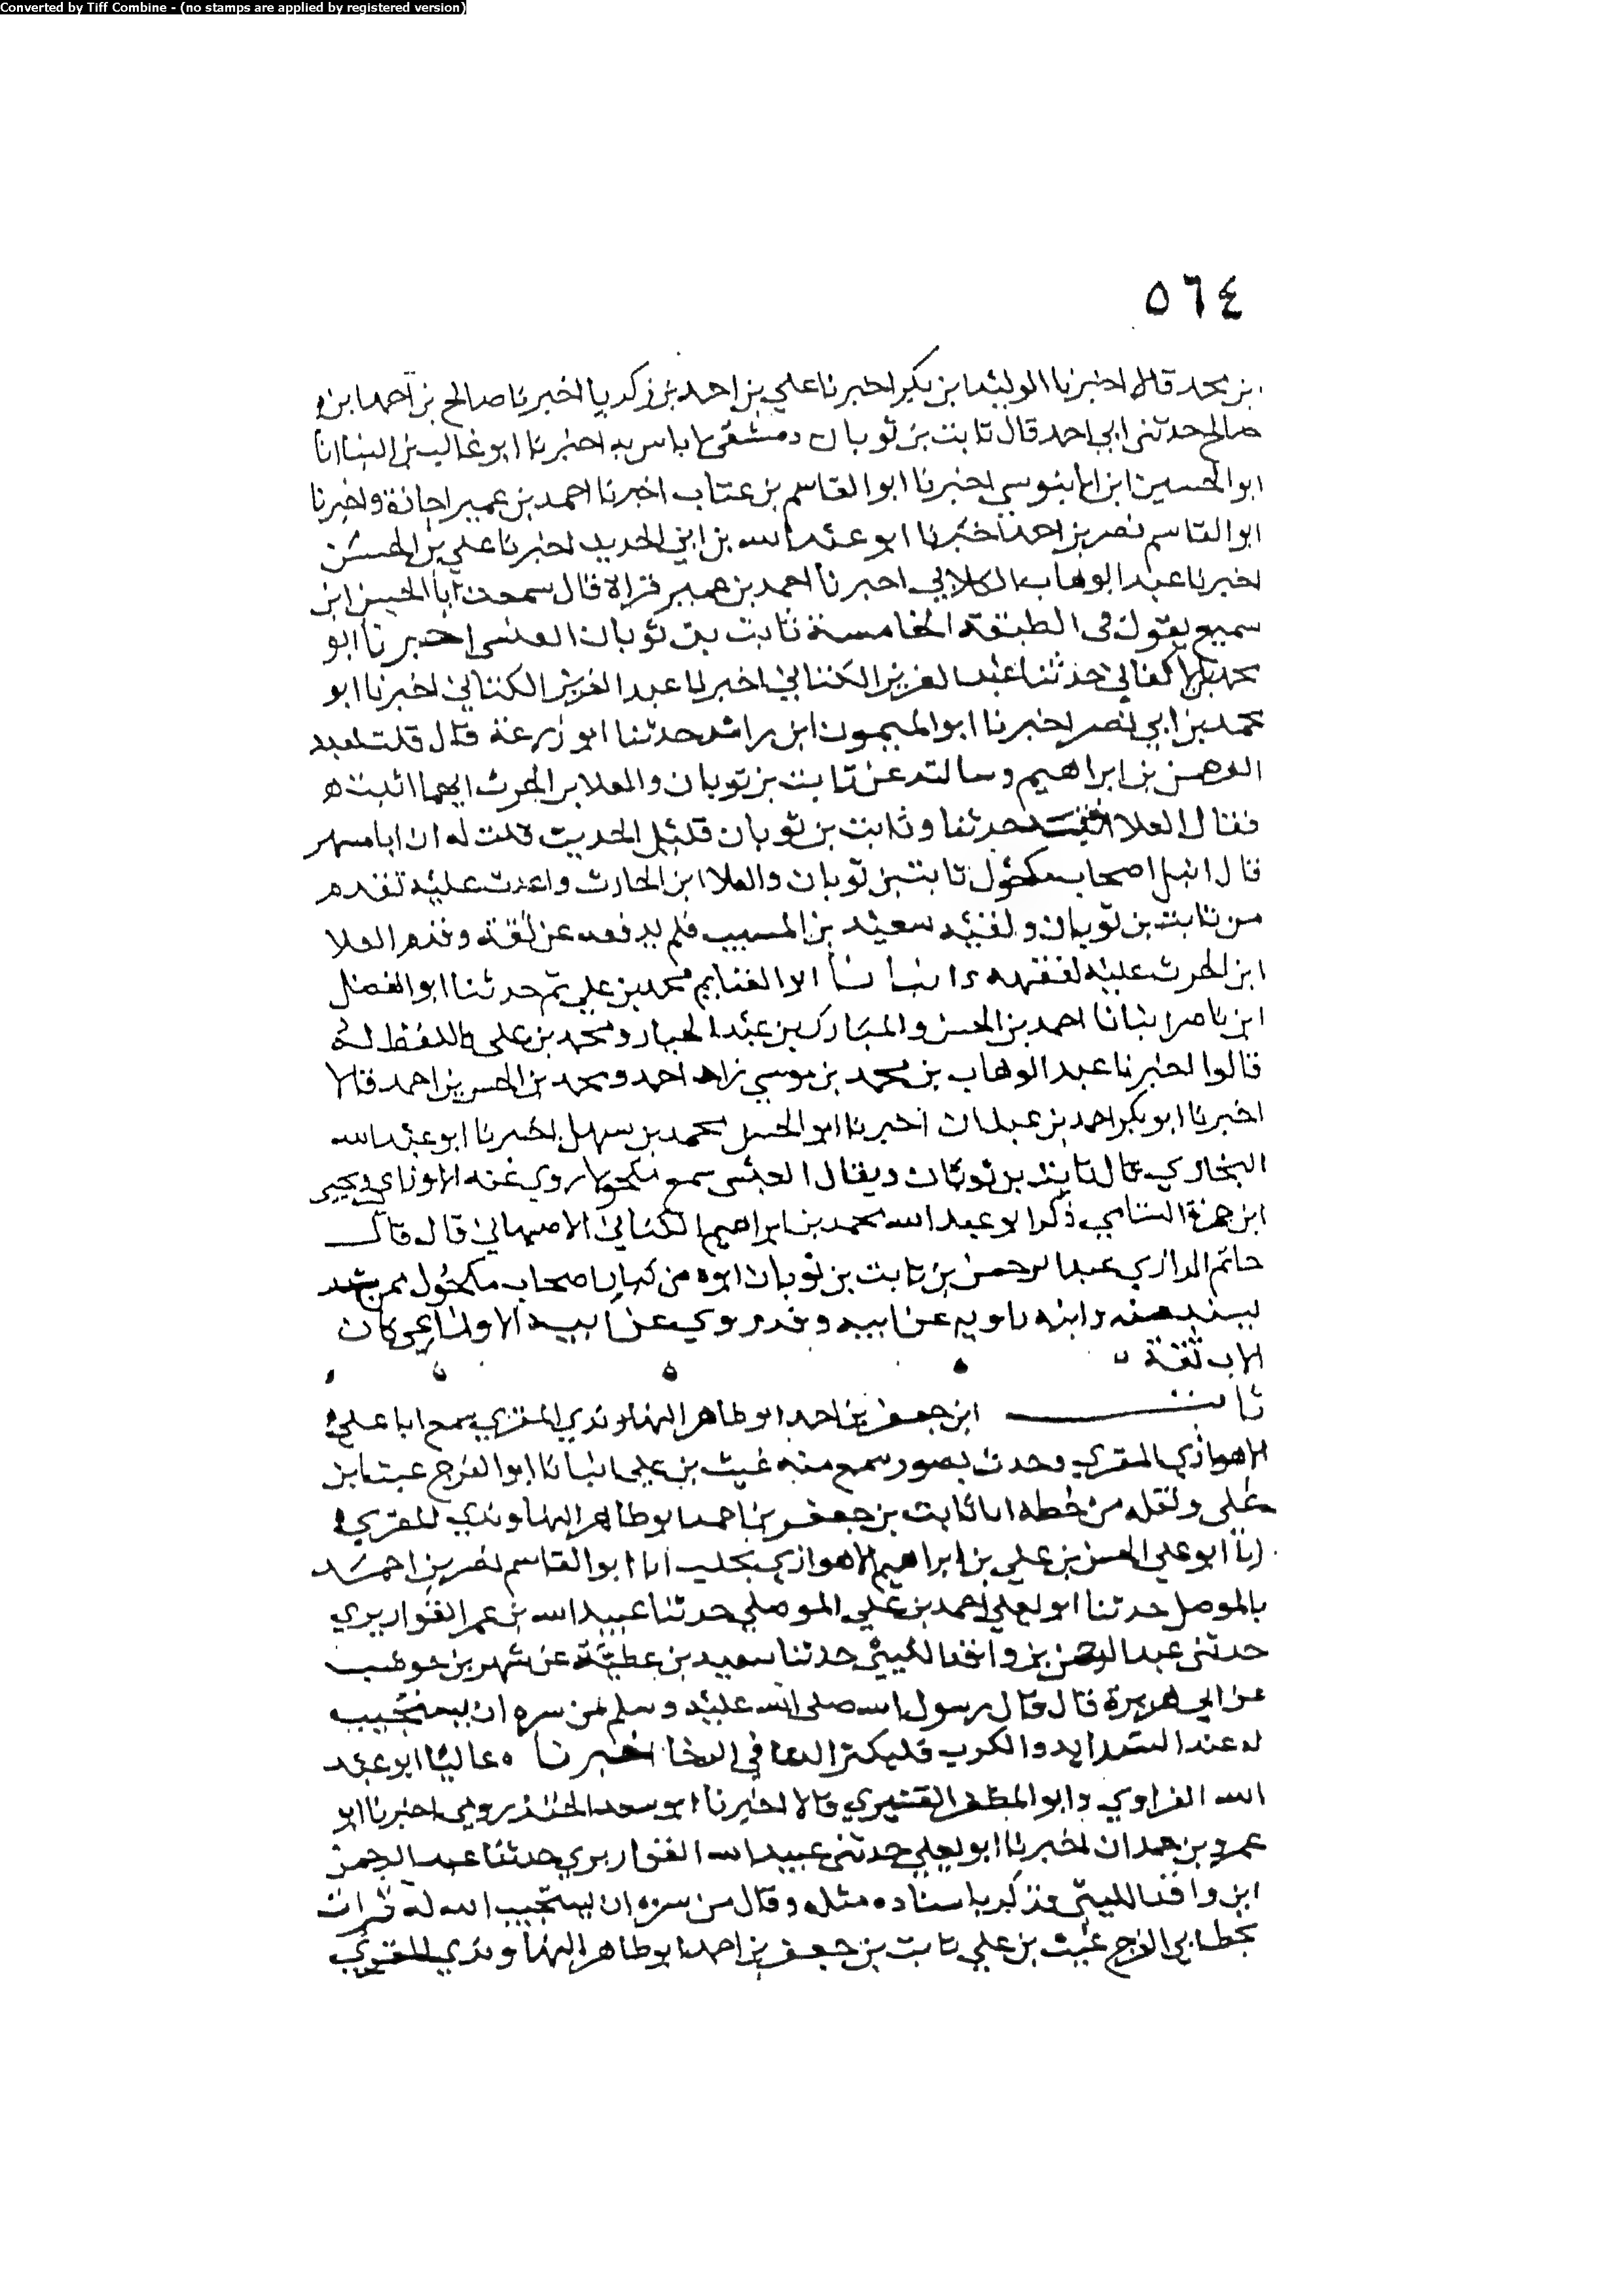 Converted by Tiff Combine - (no stamps are applied by registered version)
٥٦٤
بن محمد قالا اخبرنا الوليد بن بكر اخبرنا علي بن احمد بن زكريا اخبرنا صالح بن احمد بن
صالح حدثني ابي احمد قال ثابت بن ثوبان دمشقي لا باس به اخبرنا ابو غالب بن البنا انا
ابو الحسين ابن الابنوسي اخبرنا ابو القاسم بن عتاب اخبرنا احمد بن عمير اجازة واخبرنا
ابو القاسم نصر بن احمد اخبرنا ابو عبد الله بن ابي الحديد اخبرنا علي بن الحسن
اخبرنا عبد الوهاب الكلابي اخبرنا احمد بن عمير قراة قال سمعت ابا الحسن ابن
سميع يقول في الطبقة الخامسة ثابت بن ثوبان العنسي اخبرنا ابو
محمد الاكفاني حدثنا عبد العزيز الكتاني اخبرنا عبد العزيز الكتاني اخبرنا ابو
محمد بن ابي نصر اخبرنا ابو الميمون ابن راشد حدثنا ابو زرعة قال قلت لعبد
الرحمن بن ابراهيم وسالته عن ثابت بن ثوبان والعلا بن الحرث ايهما اثبت ه
فقال العلا حدثنا وثابت بن ثوبان قليل الحديث قلت له ان ابا مسهر
قال انبل اصحاب مكحول ثابت بن ثوبان والعلا ابن الحارث واعدت عليه تقدم
من ثابت بن ثوبان ولقيه سعيد بن المسيب فلم يدفعه عن ثقة وقدم العلا
ابن الحرث عليه لفقهه انبانا ابو الغنايم محمد بن علي ثم حدثنا ابو الفضل
ابن ناصر انبانا احمد بن الحسن والمبارك بن عبد الجبار ومحمد بن علي واللفظ له
قالوا اخبرنا عبد الوهاب بن محمد بن موسي زاد احمد ومحمد بن الحسن بن احمد قالا
اخبرنا ابو بكر احمد بن عبدان اخبرنا ابو الحسن محمد بن سهل اخبرنا ابو عبد الله
البخاري قال ثابت بن ثوبان ويقال العبسي سمع مكحولا روي عنه الاوزاعي ويحيي
ابن حمزة الشامي ذكر ابو عبد الله محمد بن ابراهيم الكتاني الاصبهاني قال قال
حاتم الرازي عبد الرحمن بن ثابت بن ثوبان ابوه من كبار اصحاب مكحول
وابنه راويه عن ابيه وقد روي عن ابيه الاوزاعي كان
الاب ثقة
ثابت ابن جعفر بن احمد ابو طاهر النهاوندي المقري سمع ابا علي
الاهوازي المقري وحدث بصور سمع منه غيث بن علي انبانا ابو الفرج غيث بن
علي ونقله من خطه انا ثابت بن جعفر بن احمد ابو طاهر النهاوندي المقري
انا ابو علي الحسن بن علي بن ابراهيم الاهوازي بحلب انا ابو القاسم نصر بن احمد
بالموصل حدثنا ابو يعلي احمد بن علي الموصلي حدثنا عبيد الله بن عمر القواريري
حدثني عبد الرحمن بن واقد الليثي حدثنا سعيد بن عطية عن شهر بن حوشب
عن ابي هريرة قال قال رسول الله صلى الله عليه وسلم من سره ان يستجيب
له عند الشدايد والكرب فليكثر الدعا في الرخا اخبرنا ه عاليا ابو عبد
الله الفراوي وابو المظفر القشيري قالا اخبرنا ابو سعد الجنزرودي اخبرنا ابو
عمرو بن حمدان اخبرنا ابو يعلي حدثني عبيد الله القواريري حدثنا عبد الرحمن
ابن واقد الليثي فذكر باسناده مثله وقال من سره ان يستجيب الله له قرات
بخط ابي الفرج غيث بن علي ثابت بن جعفر بن احمد ابو طاهر النهاوندي المقري